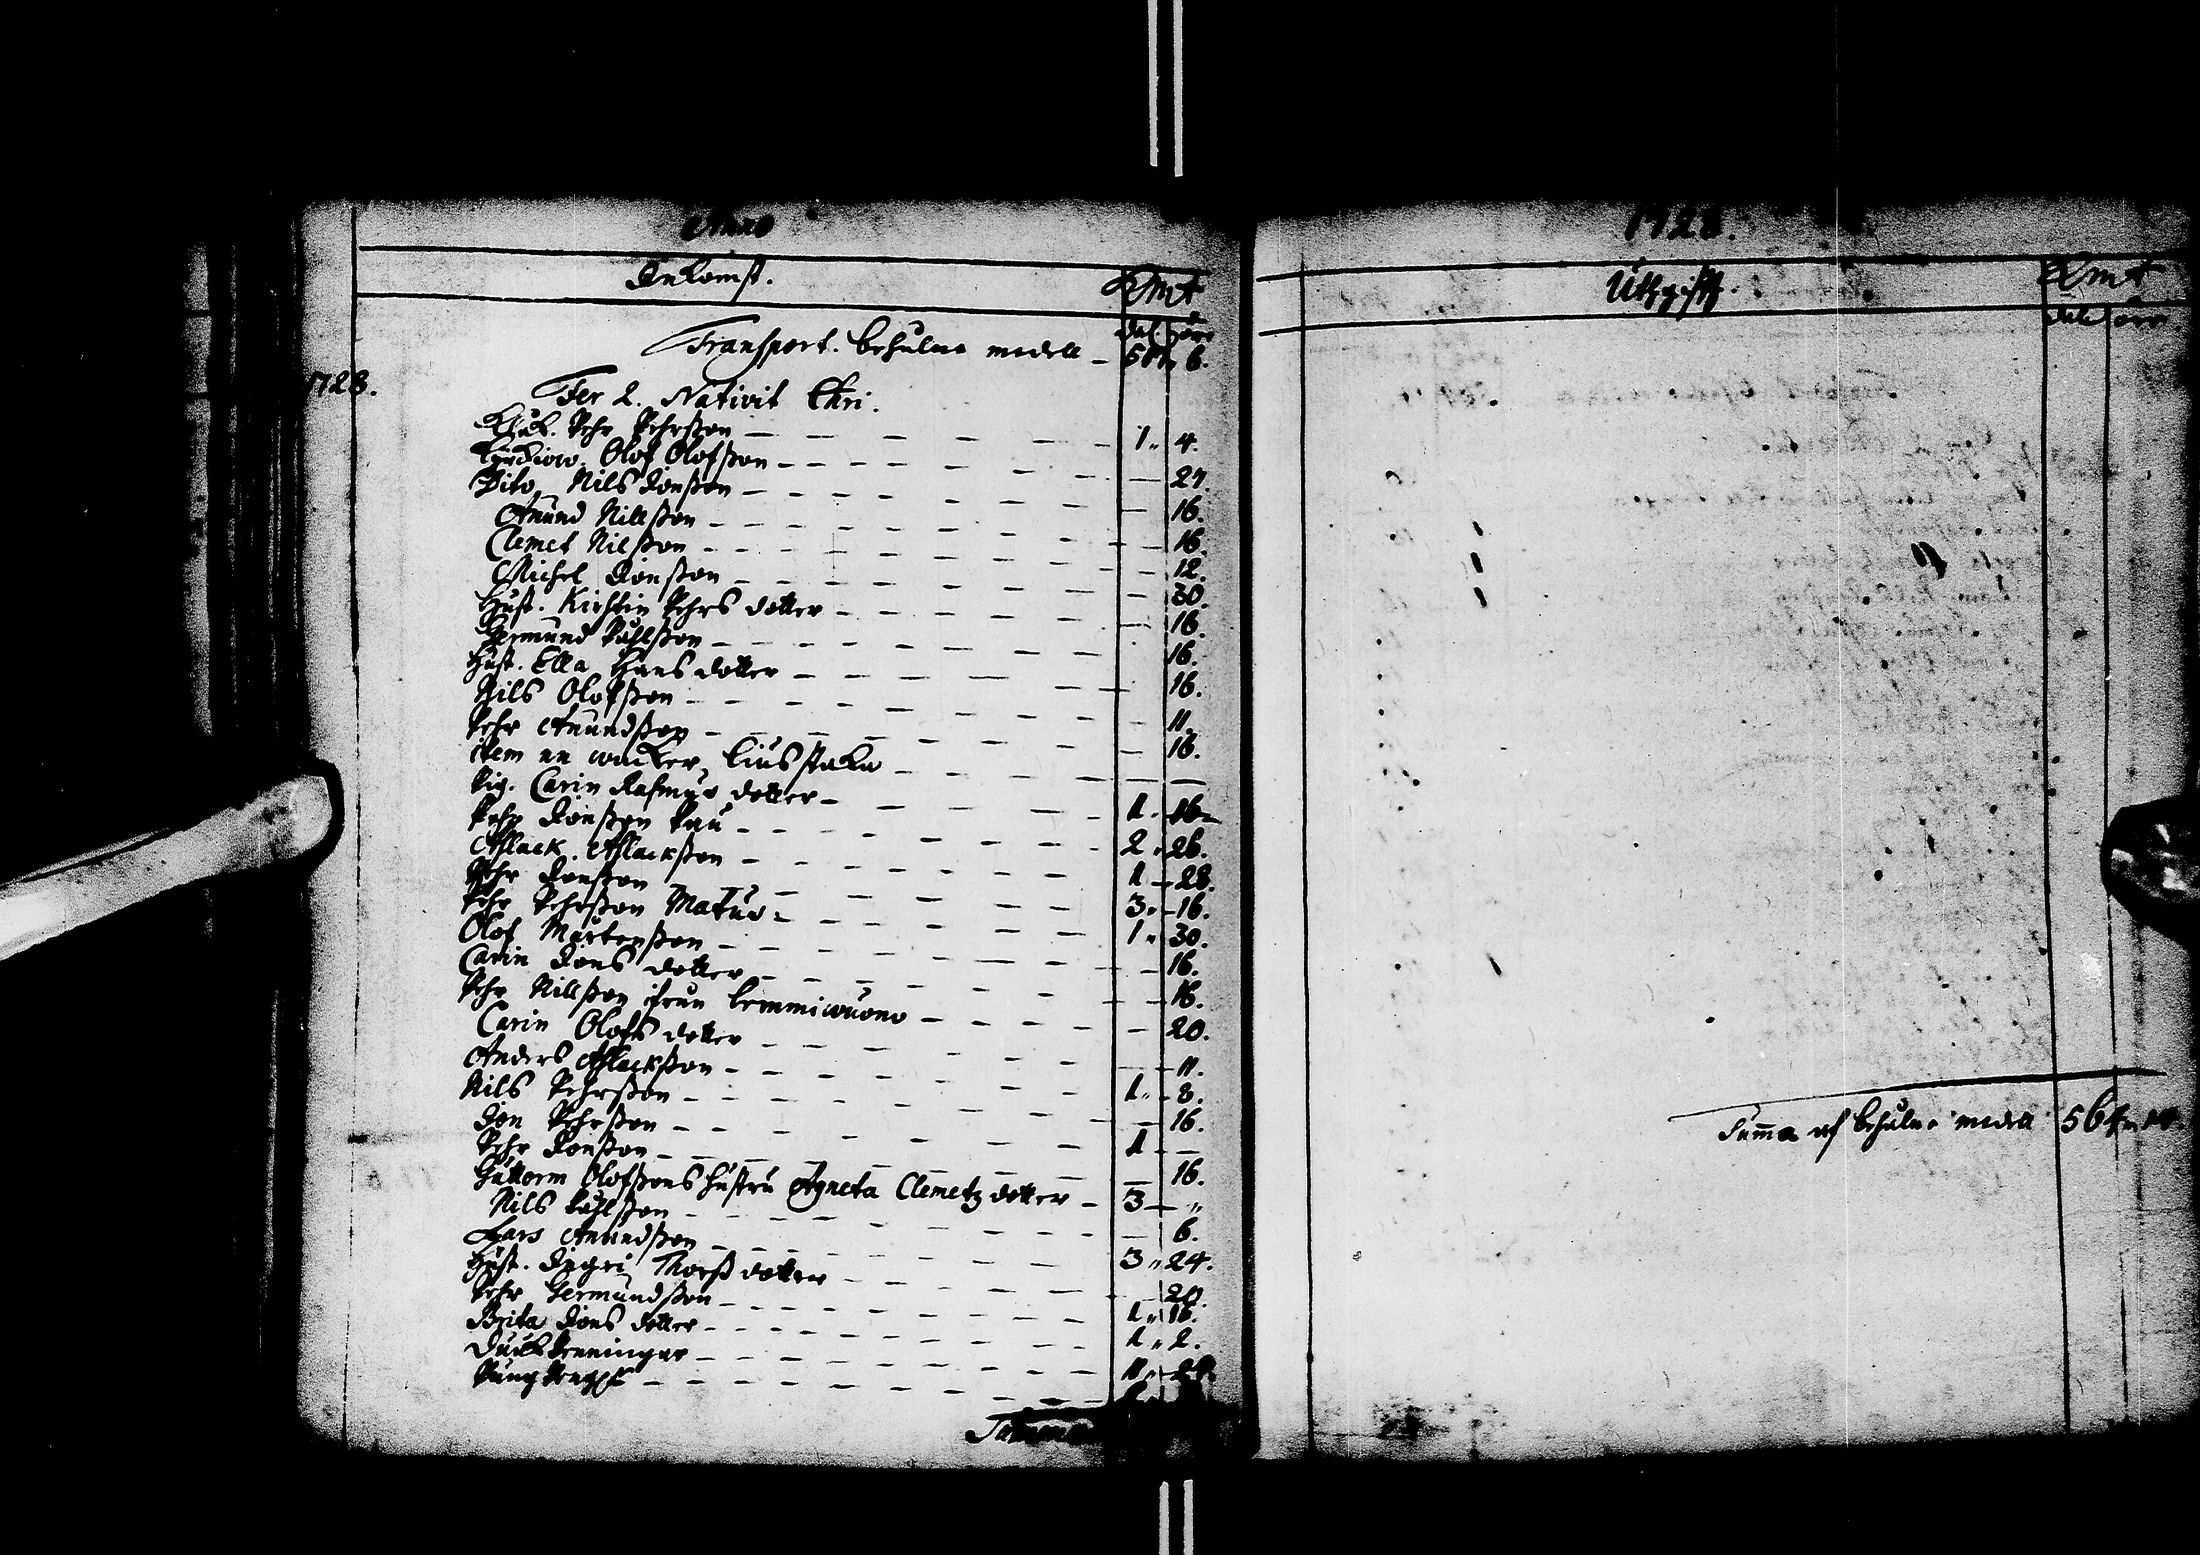 Anno
Inkomst. Kmt
dal. öre
Transport. behulne medell – 5 6.
1728.
Fer 2. Nativit Chri.
Pehr Pehrsson – 1 „ 4.
Olof Olofsson –
Dito Nils Jonsson – 27.
Amund Nillsson – 16.
Clemet Nilsson – 16.
Michel Jonsson – 12.
Hust. Kirstin Pehrs dotter – 30.
Germund Påhlsson – 16.
Hust. Ella Hans dotter – 16.
Nils Olofsson – 16.
Pehr Amundsson – 11.
item en wacker liusstaka – 16.
Pig. Carin Rasmus dotter –
Pehr Jonsson Pau – 1 „ 16
Aslack Aslacksson – 2 „ 26.
Pehr Jonsson – 1 – 28.
Pehr Pehrsson Matus – 3 „ 16.
Olof Mårtensson – 1 „ 30.
Carin Jons dotter – 16.
Pehr Nillsson ifrån Lemmiwuono – 16.
Carin Olofs dotter – 20.
Anders Aslacksson – 11.
Nils Pehrsson – 1 „ 8.
Jon Pehrsson – 16.
Pehr Jonsson – 1 –
Guttorm Olofssons hustru Agneta Clemetz dotter – 16.
Nils Påhlsson – 3 – „
Lars Amundsson – 6.
Hust. Ingri Thorss dotter – 3 „ 24.
Pehr Germundsson – 20.
Brita Jons dotter – 1 „ 16.
penningar – 1 „ 2.
Pung – 11 „ 24.
Summa
1728.
Uthgifft. Kmt
dal öre
Summa af behulne medell 564